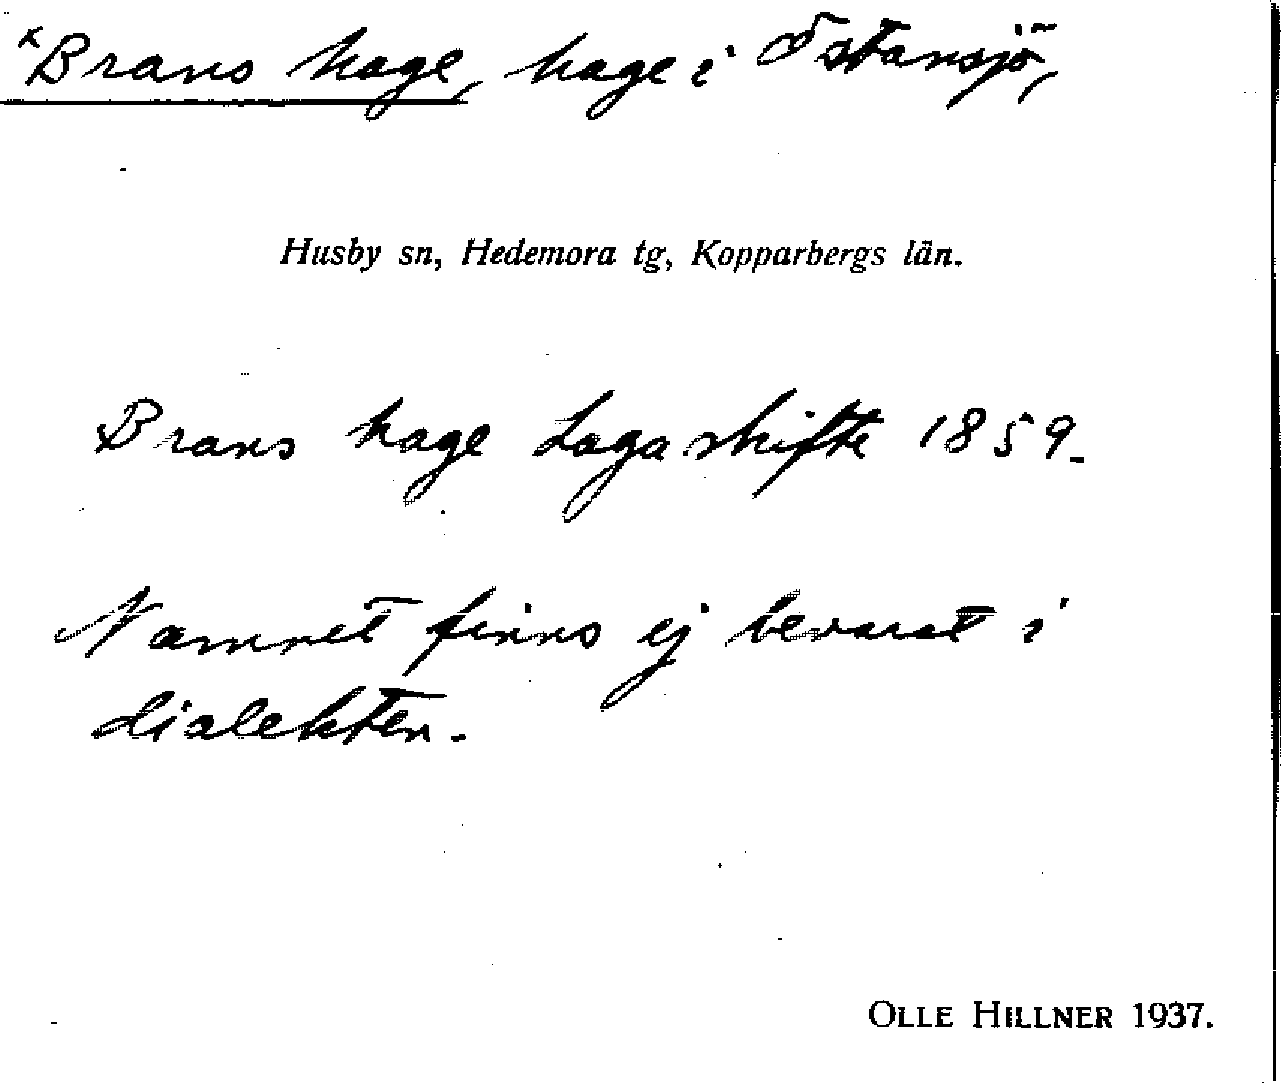 ×Brans hage, hage i Östansjö,
Husby sn, Hedemora tg, Kopparbergs län.
Brans hage Laga skifte 1859.
Namnet finns ej bevarat i
dialekten.
OLLE HILLNER 1937.